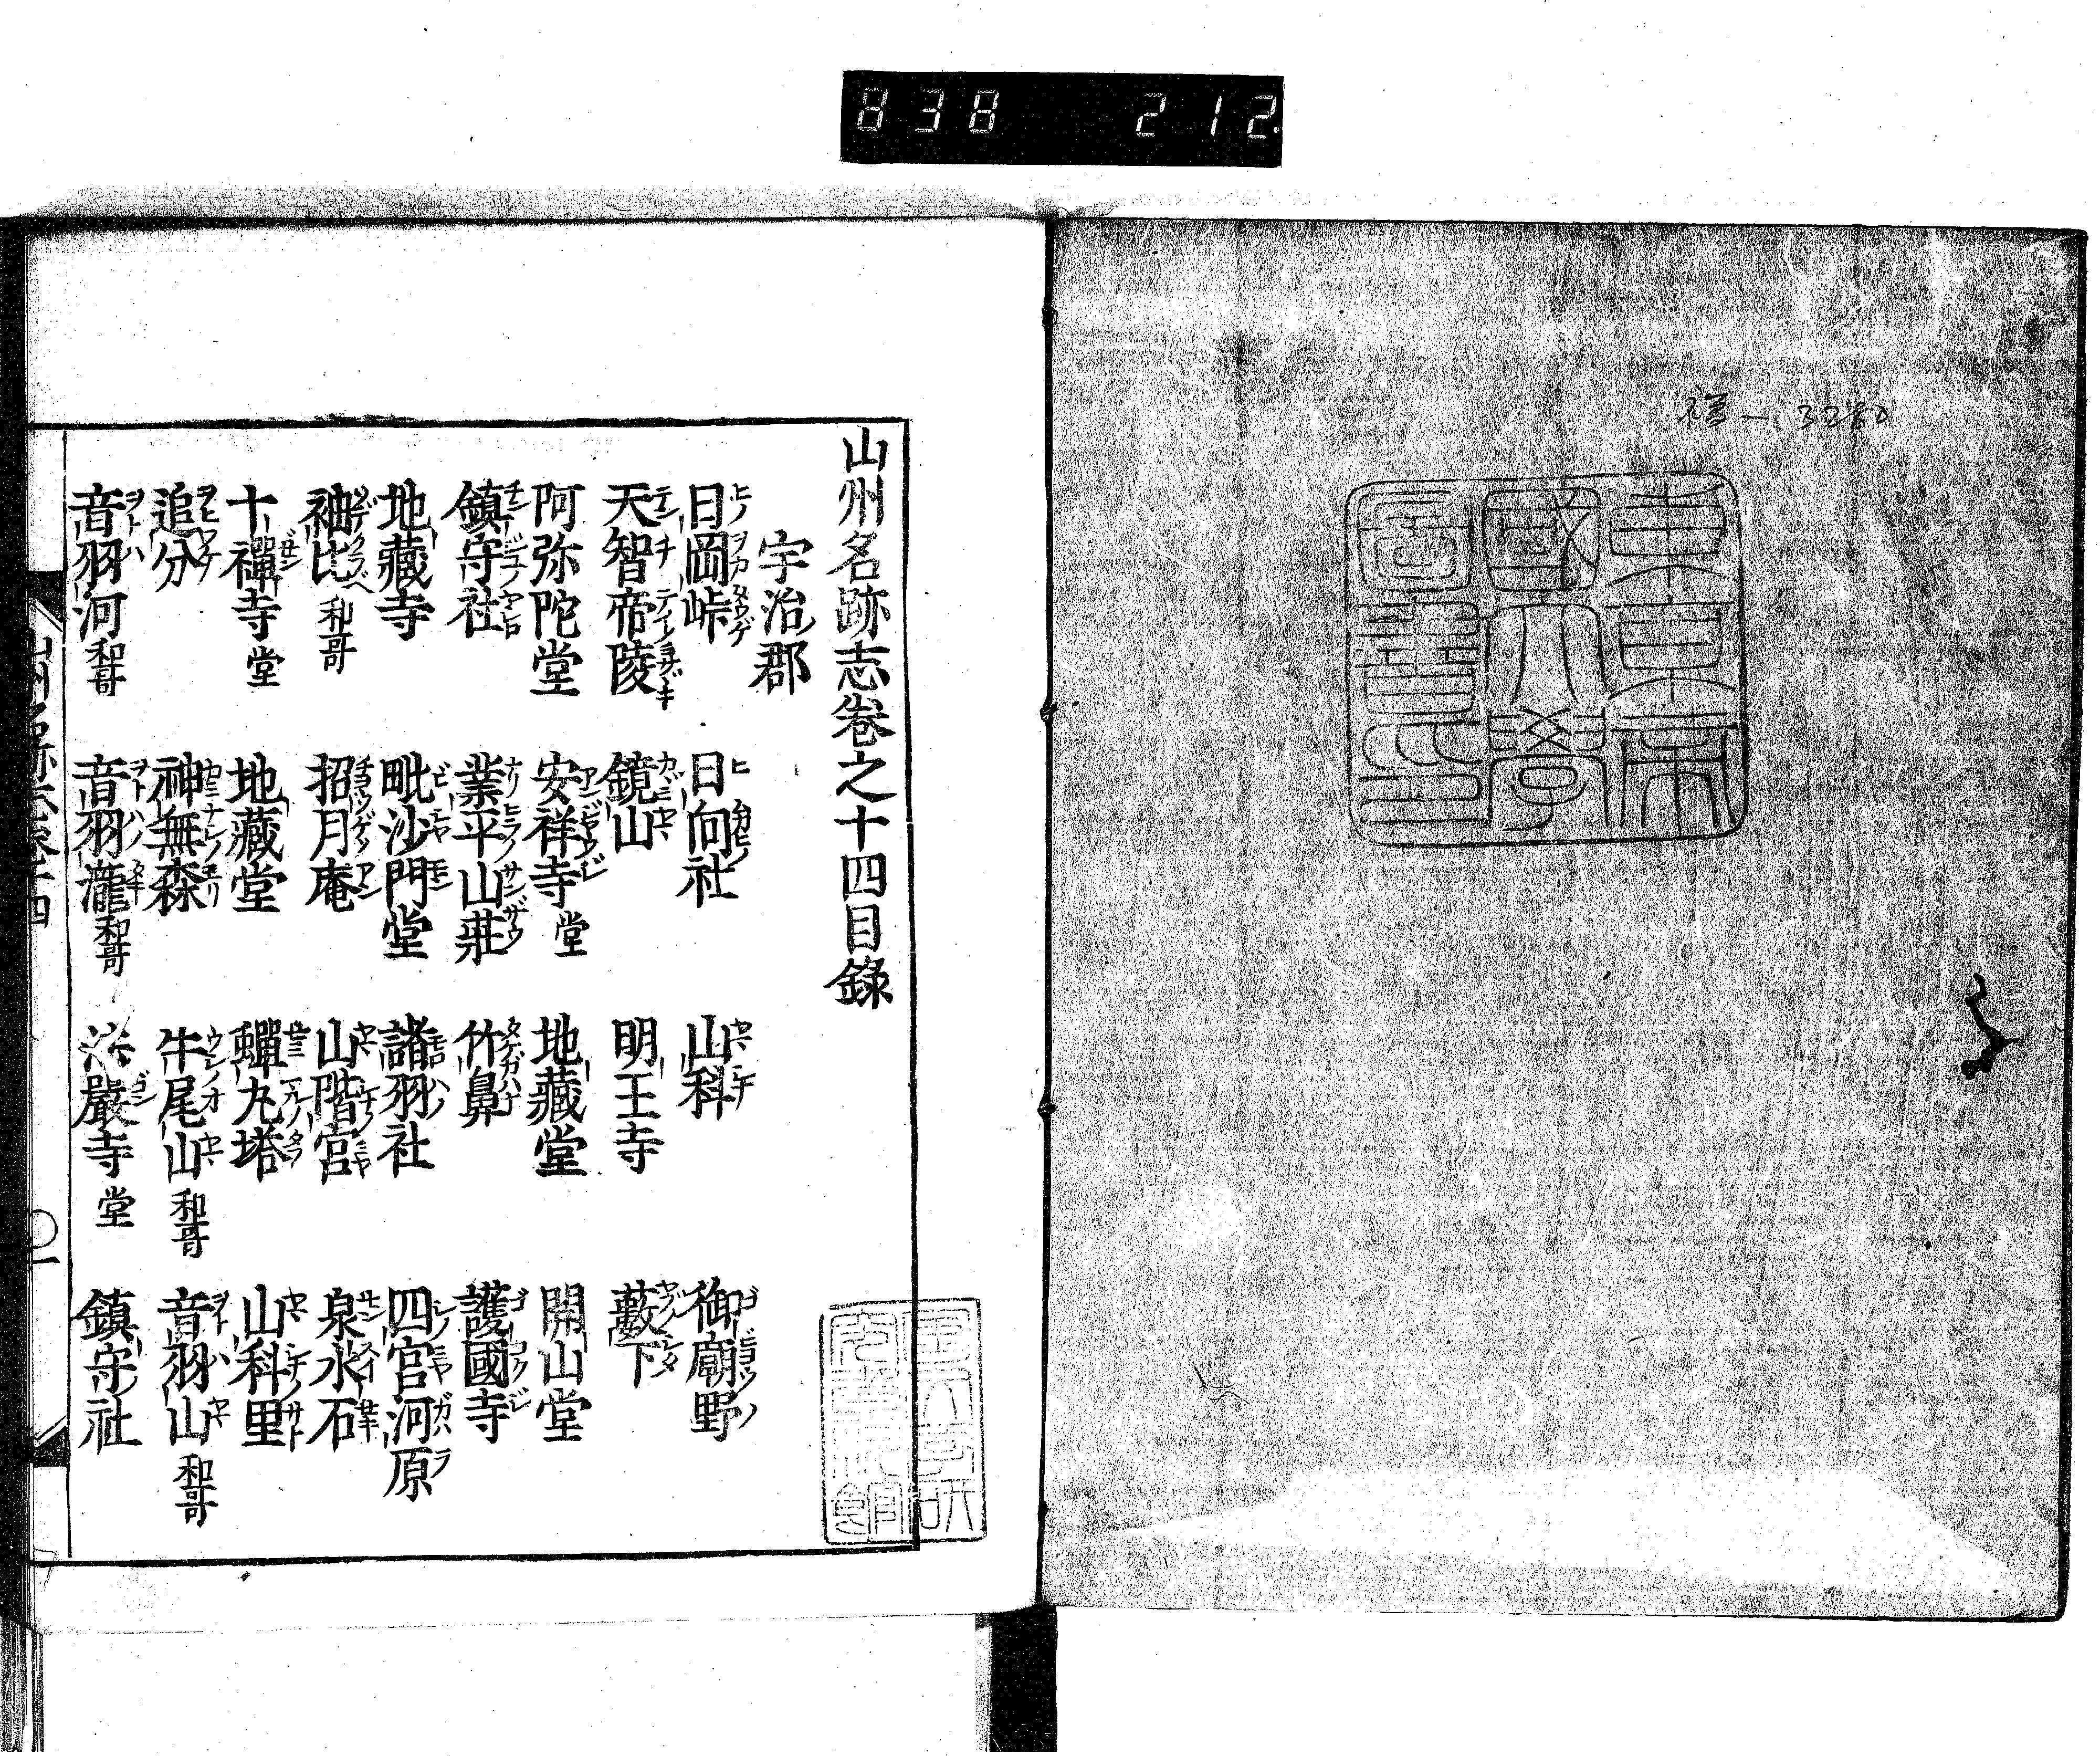 838 212
東京帝
國大學
圖書印
山州名跡志卷之十四目録
宇治郡
日岡峠 日向社 山科 御廟野
天智帝陵 鏡山 明王寺 藪下
阿弥陀堂 安祥寺堂 地藏堂 開山堂
鎮守社 業平山莊 竹鼻 護國寺
地藏寺 毗沙門堂 諸羽社 四宮河原
袖比和哥 招月庵 山階宮 泉水石
十禪寺堂 地藏堂 蟬丸塔 山科里
追分 神無森 牛尾山和哥 音羽山和哥
音羽河和哥 音羽瀧和哥 法嚴寺堂 鎮守社